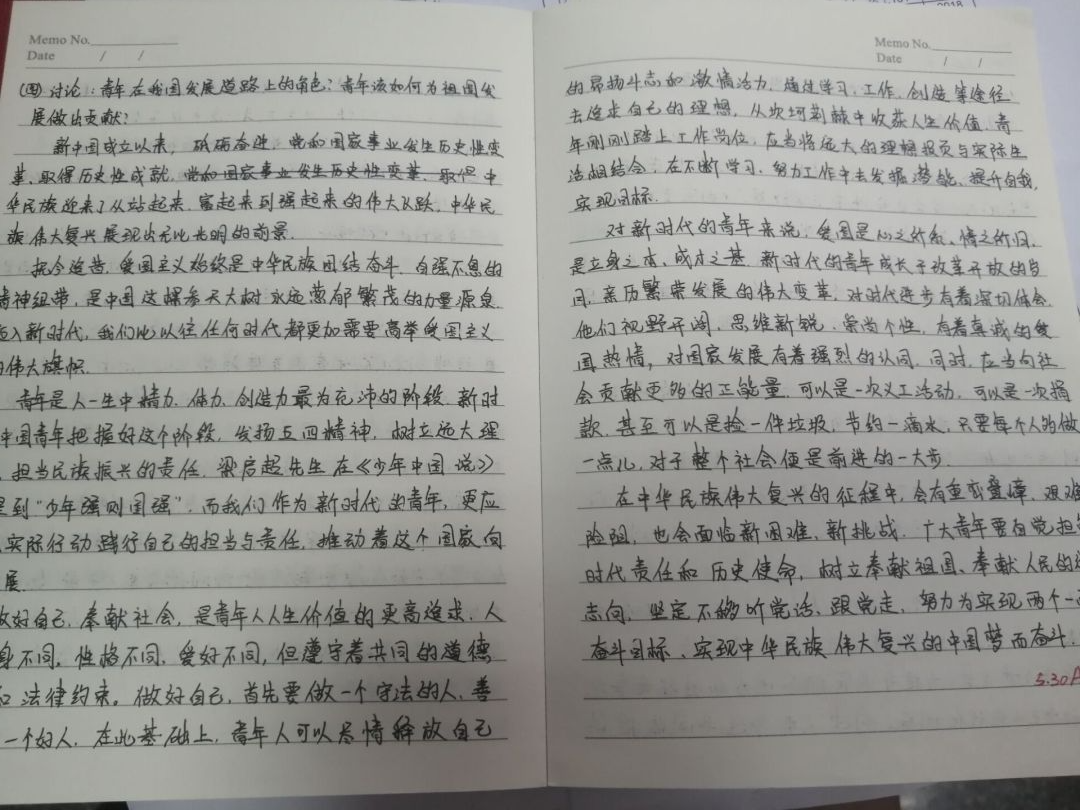 2018
Memo No.
Date / /
(四) 讨论：青年在我国发展道路上的角色；青年该如何为祖国发
展做出贡献？
新中国成立以来，砥砺奋进，党和国家事业发生历史性变
革、取得历史性成就，党和国家事业发生历史性变革、取得 中
华民族迎来了从站起来、富起来到强起来的伟大飞跃，中华民
族伟大复兴展现出无比光明的前景.
抚今追昔，爱国主义始终是中华民族团结奋斗、自强不息的
精神纽带，是中国这棵参天大树永远葱郁繁茂的力量源泉.
入新时代，我们比以往任何时代都更加需要高举爱国主义
的伟大旗帜.
青年是人一生中精力、体力、创造力最为充沛的阶段. 新时
中国青年把握好这个阶段，发扬五四精神，树立远大理
，担当民族振兴的责任. 梁启超先生在《少年中国说》
到“少年强则国强”，而我们作为新时代的青年，更应
实际行动践行自己的担当与责任，推动着这个国家向
展.
做好自己，奉献社会，是青年人人生价值的更高追求. 人
身不同，性格不同，爱好不同，但遵守着共同的道德
和法律约束。做好自己，首先要做一个守法的人、善
一个好人，在此基础上，青年人可以尽情释放自己
Memo No.
Date / /
的昂扬斗志和激情活力，通过学习、工作、创造等途径
去追求自己的理想，从坎坷荆棘中收获人生价值. 青
年刚刚踏上工作岗位，应当将远大的理想抱负与实际生
活相结合，在不断学习、努力工作中去发掘潜能、提升自我，
实现目标.
对新时代的青年来说，爱国是心之所系、情之所归，
是立身之本、成才之基. 新时代的青年成长于改革开放的岁
月，亲历繁荣发展的伟大变革，对时代进步有着深切体会.
他们视野开阔、思维新锐、崇尚个性，有着真诚的爱
国热情，对国家发展有着强烈的认同. 同时，应当向社
会贡献更多的正能量，可以是一次义工活动，可以是一次捐
款，甚至可以是捡一件垃圾、节约一滴水，只要每个人多做
一点儿，对于整个社会便是前进的一大步.
在中华民族伟大复兴的征程中，会有重峦叠嶂、艰难
险阻，也会面临新困难、新挑战. 广大青年要自觉担
时代责任和历史使命，树立奉献祖国、奉献人民的
志向，坚定不移听党话、跟党走，努力为实现两个一
奋斗目标、实现中华民族伟大复兴的中国梦而奋斗.
5.30